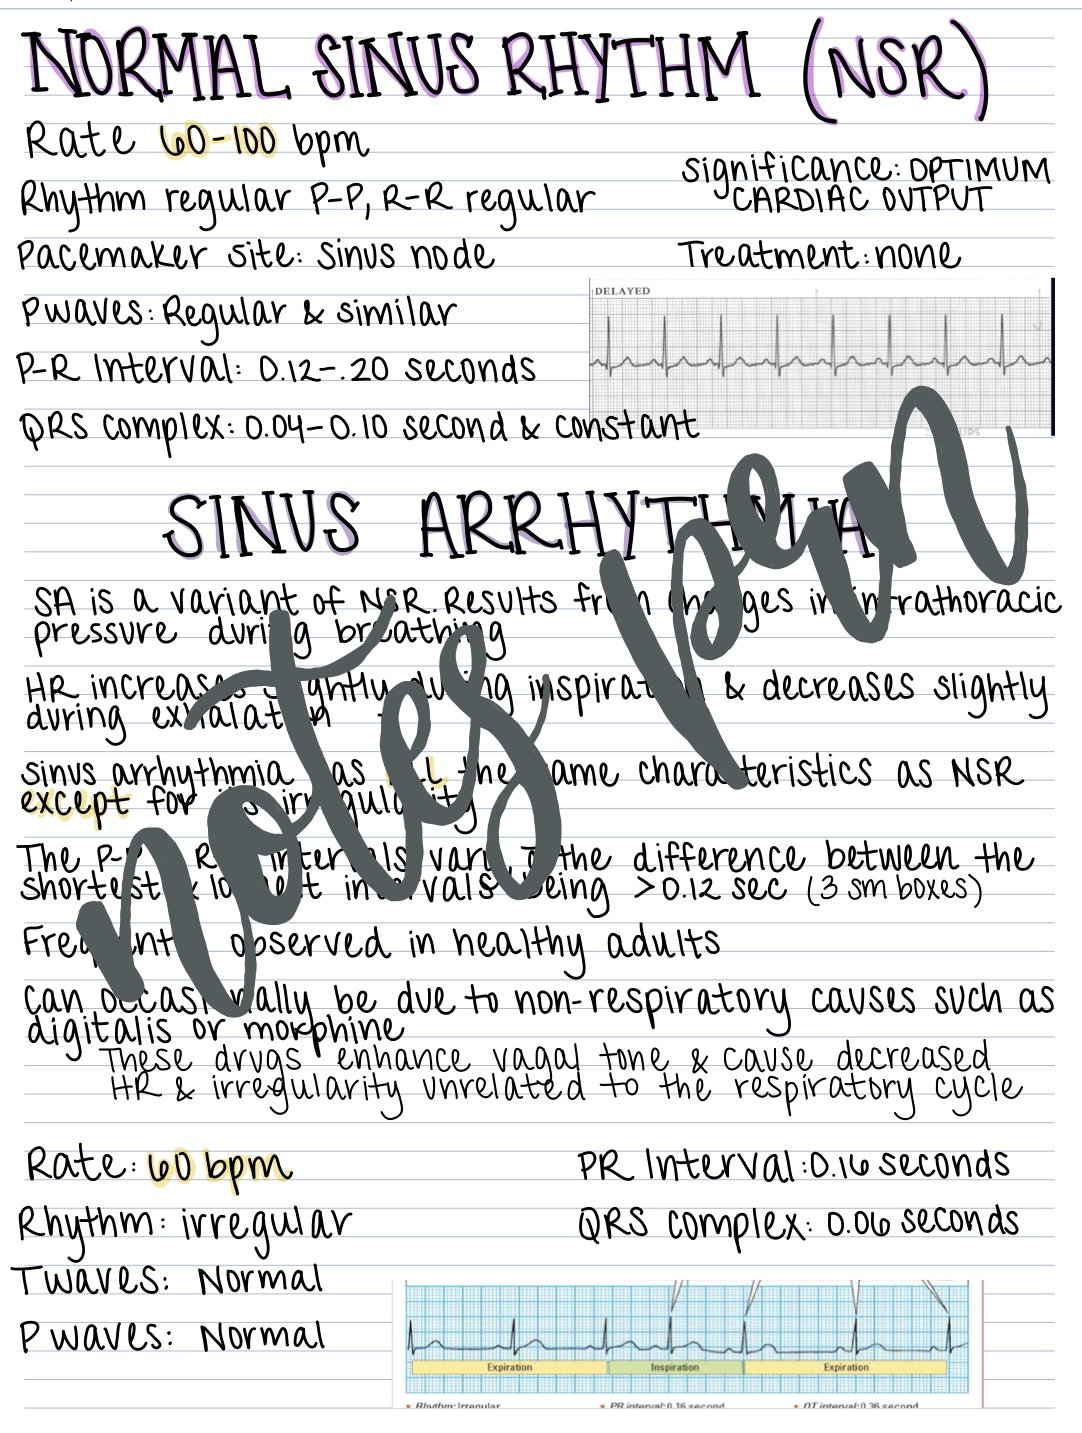 NORMAL SINUS RHYTHM (NSR)
Rate 60-100 bpm
Rhythm regular P-P, R-R regular
Pacemaker site: sinus node
Pwaves: Regular & similar
P-R Interval: 0.12-.20 seconds
QRS complex: 0.04-0.10 second & constant
significance: OPTIMUM
CARDIAC OUTPUT
Treatment: none
DELAYED
SINUS ARRHYTHMIA
SA is a variant of NSR. Results from changes in intrathoracic
pressure during breathing
HR increases slightly during inspiration & decreases slightly
during exhalation
sinus arrhythmia has ALL the same characteristics as NSR
except for its irregularity
The P-P R intervals vary the difference between the
shortest & longest intervals being >0.12 sec (3 sm boxes)
Frequently observed in healthy adults
can occasionally be due to non-respiratory causes such as
digitalis or morphine
These drugs enhance vagal tone & cause decreased
HR & irregularity unrelated to the respiratory cycle
Rate: 60 bpm
Rhythm: irregular
Twaves: Normal
P waves: Normal
PR Interval: 0.16 seconds
QRS complex: 0.06 seconds
Expiration Inspiration Expiration
• Rhythm: Irregular • PR interval: 0.16 second • QT interval: 0.36 second
notes pen